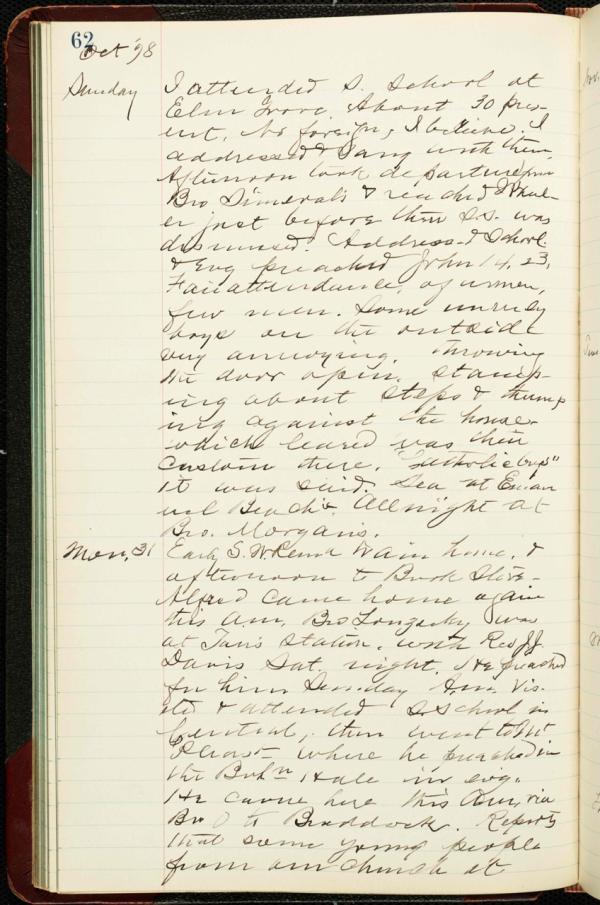 62
Oct '98
Sunday I attended S. School at
Elm Grove. About 30 pres-
ent, No foreign, I believe. I
addressed & Sang with them.
Afternoon took departure from
Bro Simeral's & reached
er just before their S.S. was
dismissed. Address-d School.
& Evg preached John 14, 23,
Fair attendance, of women,
few men. Some unruly
boys on the outside
very annoying. Throwing
the door open, stamp-
ing about steps & thump
ing against the house-
which leared was their
custom there. "Catholic boys"
it was said. Sea at Eman
uel Beach's. All night at
Bro. Morgan's.
Mon, 31 Early S. W. Penna train home, &
afternoon to Book Store-
Alfred came home again
this am, Bro Longacky was
at Tarrs Station, with Rev JJ
Davis Sat. night. He preached
for him Sunday A.m. Vis-
ited & attended S. School in
Central, then went to Mt
Pleasant where he preached in
the Bohn Hale in evg.
He came here this am, via
Br to Braddock. Reports
that some young people
from our church at